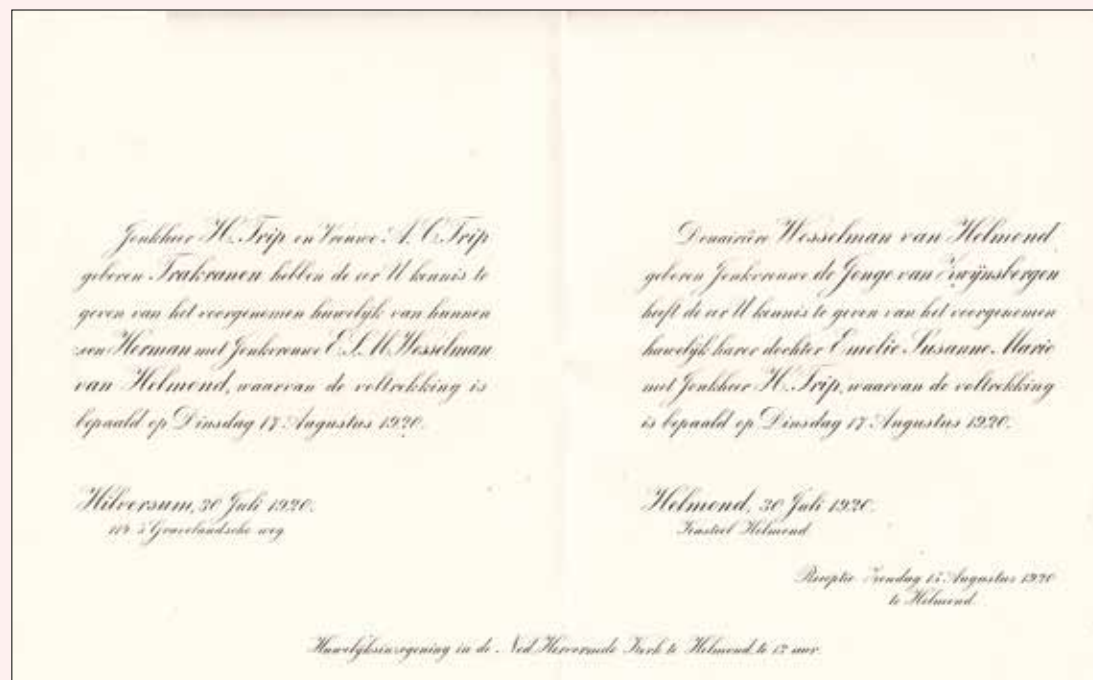 Jonkheer H. Trip en Vrouwe A. C. Trip
geboren Trakranen hebben de eer U kennis te
geven van het voorgenomen huwelijk van hunnen
zoon Herman met Jonkvrouwe E. S. M. Wesselman
van Helmond, waarvan de voltrekking is
bepaald op Dinsdag 17 Augustus 1920.
Hilversum, 30 Juli 1920.
114 's Gravelandsche weg
Douairière Wesselman van Helmond
geboren Jonkvrouwe de Jonge van Zwijnsbergen
heeft de eer U kennis te geven van het voorgenomen
huwelijk harer dochter Emelie Susanne Marie
met Jonkheer H. Trip, waarvan de voltrekking
is bepaald op Dinsdag 17 Augustus 1920.
Helmond, 30 Juli 1920.
Kasteel Helmond
Receptie Zondag 15 Augustus 1920
te Helmond
Huwelijksinzegening in de Ned. Hervormde Kerk te Helmond te 12 uur.